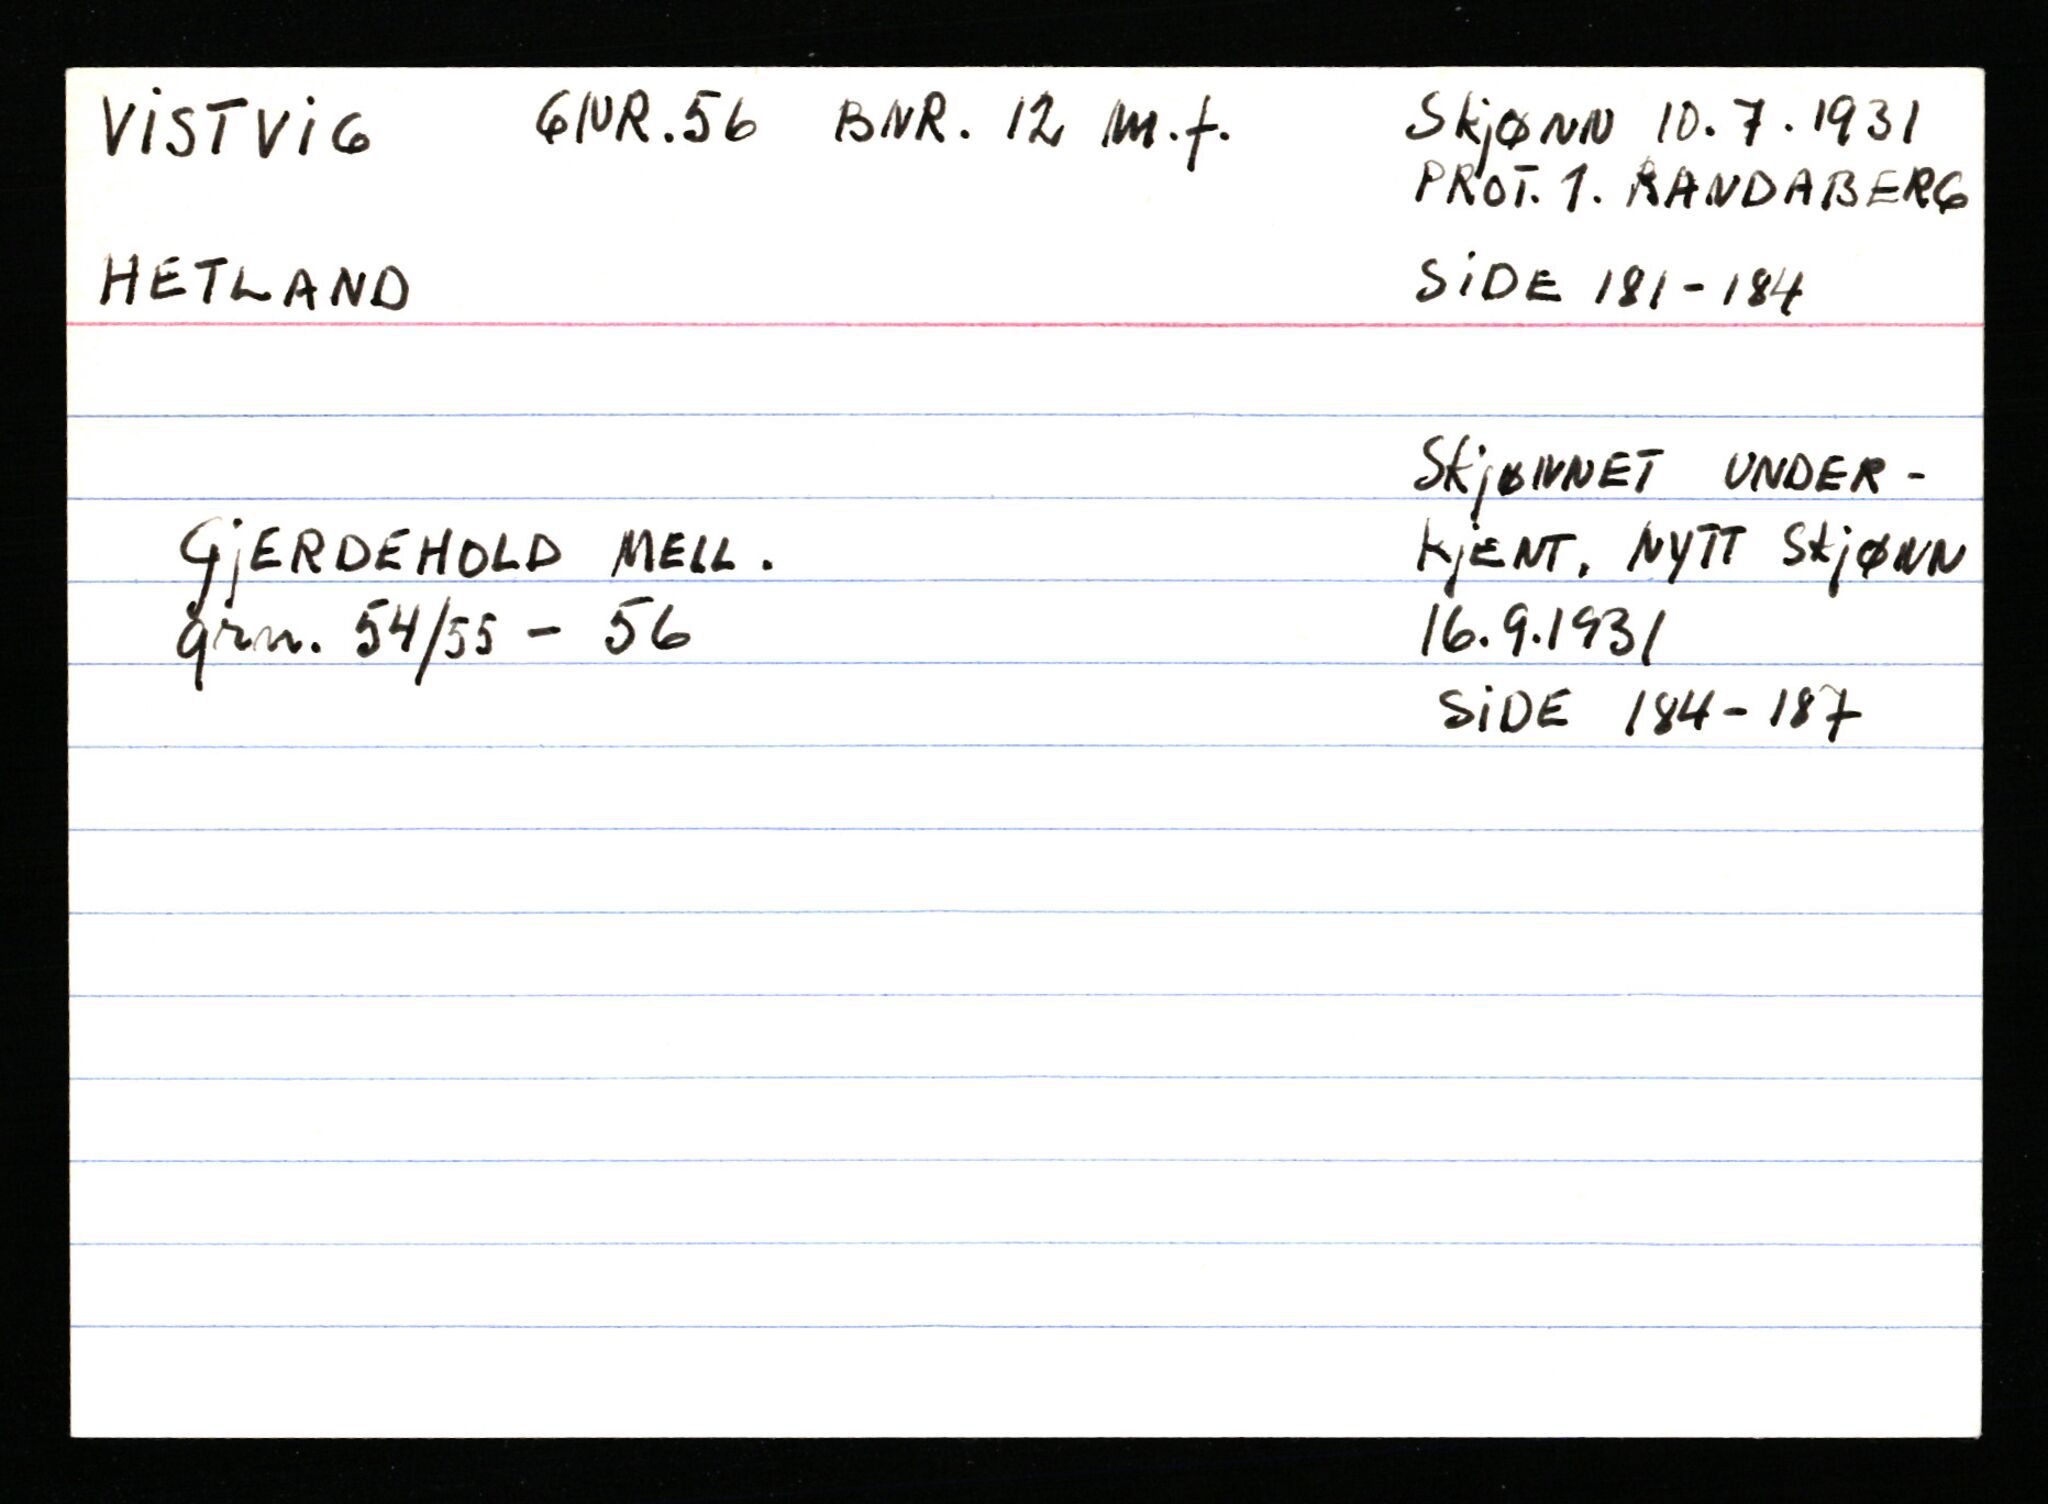 VISTVIG GNR. 56 BNR. 12 m.f. Skjønn 10.7.1931
PROT. 1. RANDABERG
HETLAND SIDE 181-184
SkjønnET UNDER-
GjERDEHOLD MELL. kjENT. NYTT Skjønn
grn. 54/55 - 56 16.9.1931
SIDE 184-187